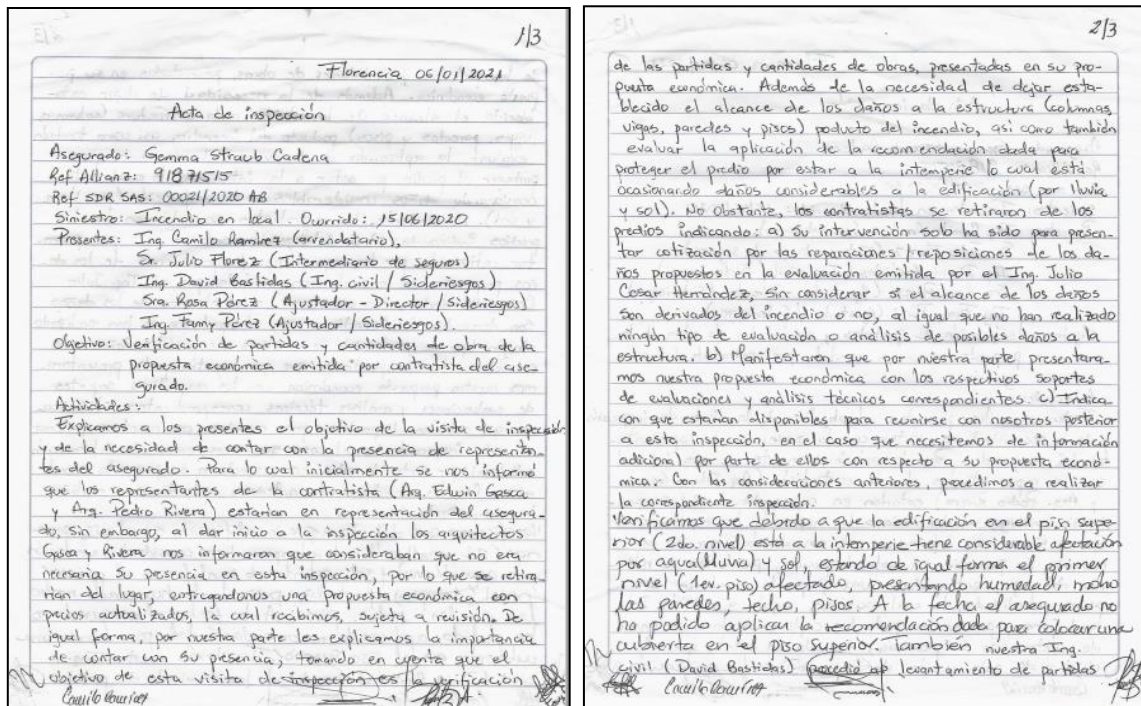 1/3
Florencia 06/01/2021
Acta de inspección
Asegurado: Gemma Straub Cadena
Ref Allianz: 91871515
Ref SDR SAS: 00021/2020 AB
Siniestro: Incendio en local. Ocurrido: 15/06/2020
Presentes: Ing. Camilo Ramirez (arrendatario),
Sr. Julio Florez (Intermediario de seguros)
Ing. David Bastidas (Ing. civil / Sideriesgos)
Sra. Rosa Pérez (Ajustador - Director / Sideriesgos)
Ing. Fanny Pérez (Ajustador / Sideriesgos).
Objetivo: Verificación de partidas y cantidades de obra de la
propuesta económica emitida por contratista del ase-
gurado.
Actividades:
Explicamos a los presentes el objetivo de la visita de inspección
y de la necesidad de contar con la presencia de representan-
tes del asegurado. Para lo cual inicialmente se nos informó
que los representantes de la contratista (Arq. Edwin Gasca
y Arq. Pedro Rivera) estarian en representación del asegura-
do, sin embargo, al dar inicio a la inspección los arquitectos
Gasca y Rivera nos informaron que consideraban que no era
necesaria su presencia en esta inspección, por lo que se retira-
rian del lugar, entregandonos una propuesta económica con
precios actualizados, la cual recibimos, sujeta a revisión. De
igual forma, por nuestra parte les explicamos la importancia
de contar con su presencia, tomando en cuenta que el
objetivo de esta visita de inspección es la verificación
Camilo Ramirez
2/3
de las partidas y cantidades de obras, presentadas en su pro-
puesta económica. Además de la necesidad de dejar esta-
blecido el alcance de los daños a la estructura (columnas,
vigas, paredes y pisos) poducto del incendio, así como también
evaluar la aplicación de la recomendación dada para
proteger el predio por estar a la intemperie lo cual está
ocasionando daños considerables a la edificación (por lluvia
y sol). No obstante, los contratistas se retiraron de los
predios indicando: a) Su intervención solo ha sido para presen-
tar cotización por las reparaciones / reposiciones de los da-
ños propuestos en la evaluación emitida por el Ing. Julio
Cesar Hernández, sin considerar si el alcance de los daños
son derivados del incendio o no, al igual que no han realizado
ningún tipo de evaluación o análisis de posibles daños a la
estructura. b) Manifestaron que por nuestra parte presentara-
mos nuestra propuesta económica con los respectivos soportes
de evaluaciones y análisis técnicos correspondientes. c) Indica
con que estarían disponibles para reunirse con nosotros posterior
a esta inspección, en el caso que necesitemos de información
adicional por parte de ellos con respecto a su propuesta econó-
mica. Con las consideraciones anteriores, procedimos a realizar
la correspondiente inspección.
Verificamos que debido a que la edificación en el piso supe-
rior (2do. nivel) está a la intemperie tiene considerable afectación
por agua (lluvia) y sol, estando de igual forma el primer
nivel (1er. piso) afectado, presentando humedad, moho
las paredes, techo, pisos. A la fecha el asegurado no
ha podido aplicar la recomendación dada para colocar una
cubierta en el piso superior. También nuestra Ing.
civil (David Bastidas) procedió al levantamiento de partidas
Camilo Ramirez